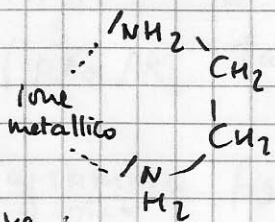 NH2
CH2
Ione
metallico
CH2
N
H2